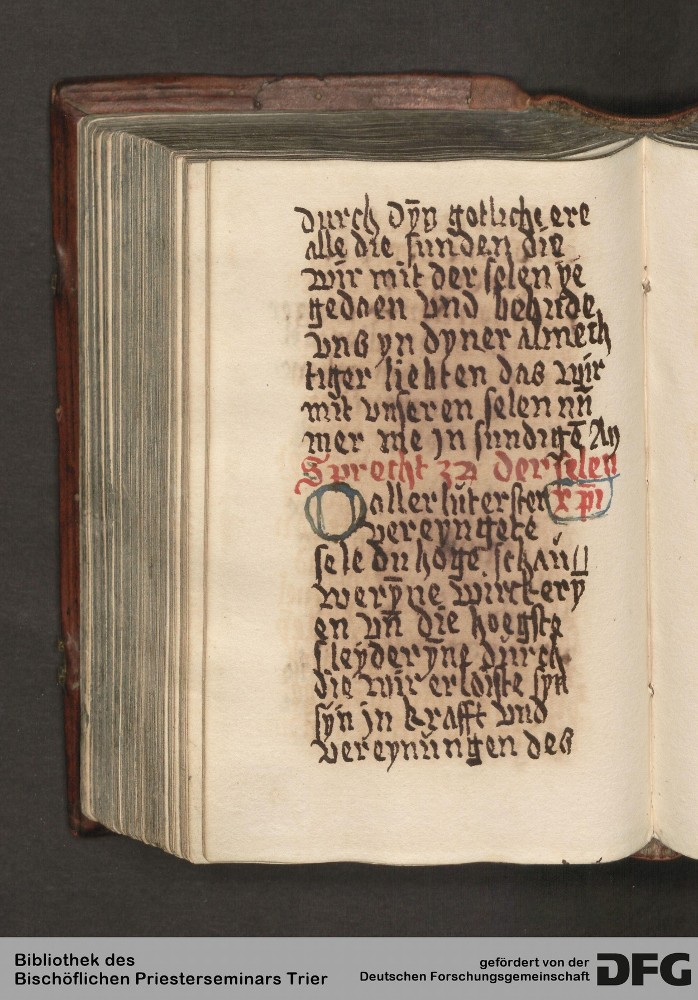 durch dÿn gotliche ere
alle die sunden die
wir mit der selen ye
gedaen vnd behude
vns yn dyner almech
tiger liebten das wir
mit vnseren selen nū
mer me jn sundigē An
Sprecht zu der selen
O aller luterster xpi
vereyngete
sele du hoge schau
werȳne wirckerȳ
en vn̄ die hoegste
lleyderȳne durch
die wir erloiste syn
syn jn krafft vnd
vereynungen des
Bibliothek des
Bischöflichen Priesterseminars Trier
gefördert von der
Deutschen Forschungsgemeinschaft DFG